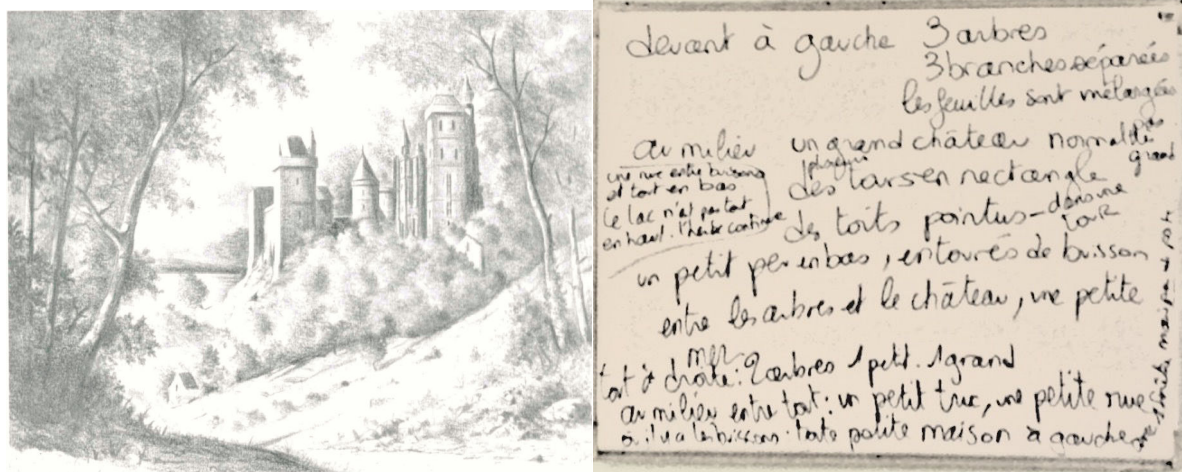 devant à gauche 3 arbres
3 branches séparées
les feuilles sont mélangées
au milieu un grand château normal
pas grand
une rue entre buissons
et tout en bas
le lac n'est pas tout
en haut. l'herbe continue
plusieurs
des tours en rectangle
des toits pointus - dans une
tour
un petit peu en bas, entourés de buisson
entre les arbres et le château, une petite
mer
tout à droite : 2 arbres 1 petit. 1 grand
au milieu entre tout : un petit truc, une petite rue
où il y a les buissons. toute petite maison à gauche
petite maison